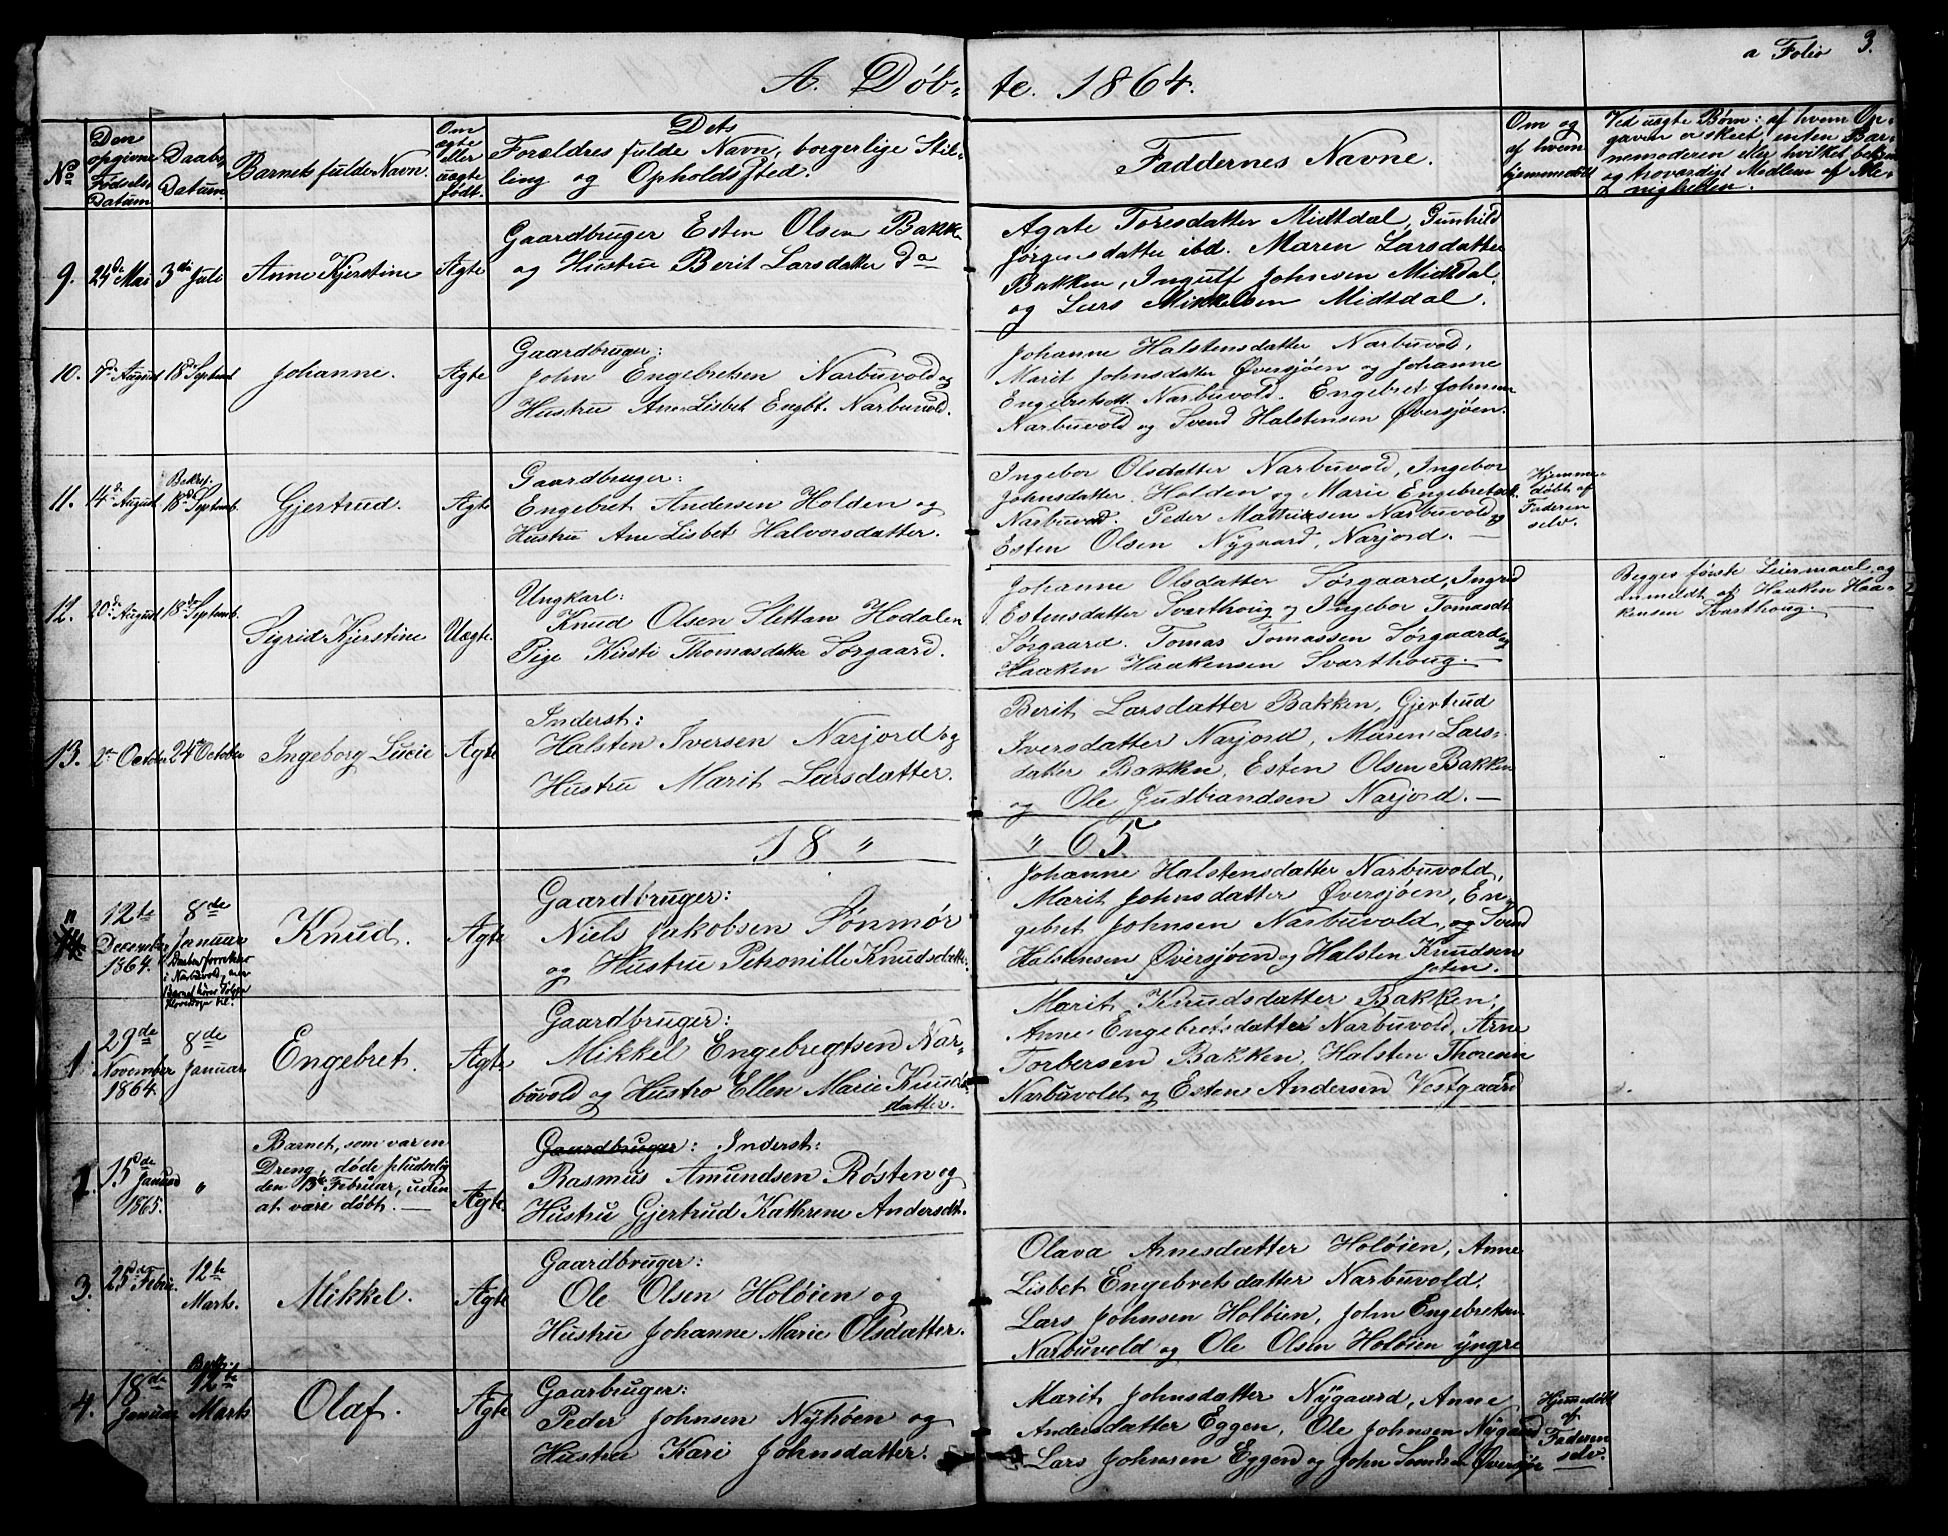 a Folio 3.
A. Døb- te. 1864.
Nor
Den opgivne Fødsels Datum
Daabs Datum.
Barnets fulde Navn.
Om ægte eller uægte født.
Dets
Forældres fulde Navn, borgerlige Stil-
ling og Opholdssted.
Faddernes Navne.
Om og
af hvem
hjemmedøbt
Ved uægte Børn: af hvem Op-
gaven er skeet, enten Bar-
nemoderen eller hvilket bekjen
og troværdigt Medlem af Me-
nigheden.
9. 24de Mai 3die Juli Anne Kjerstine Ægte
Gaardbruger Esten Olsen Bakk
og Hustru Berit Larsdatter do
Agate Toresdatter Midtdal, Gunhild
Jørgensdatter ibd. Maren Larsdatter
Bakken, Ingulf Johnsen Midtdal
og Lars Mikkelsen Midtdal.
10. 7de August 18de Septemb Johanne. Ægte
Gaardbruger:
John Engebretsen Narbuvold og
Hustru Ane Lisbet Engbt. Narbuvold.
Johanne Halstensdatter Narbuvod,
Marit Johnsdatter Øversjøen og Johanne
Engebretsdtt. Narbuvold. Engebret Johnsen
Narbuvold og Svend Halstensen Øversjøen.
11. 14de August Bekræf. 18de Septemb. Gjertrud. Ægte
Gaardbruger:
Engebret Andersen Holden og
Hustru Ane Lisbet Halvorsdatter.
Ingebor Olsdatter Narbuvold, Ingebor
Johnsdatter Holden og Marie Engebretsdt.
Narbuvod. Peder Mathisen Narbuvold og
Esten Olsen Nygaard, Narjord. —
Hjemme-
døbt af
Faderen
selv.
12. 20de August 18de Septemb. Sigrid Kjerstine Uægte.
Ungkarl:
Knud Olsen Slettan Hodalen
Pige Kirsti Thomasdatter Sørgaard.
Johanne Olsdatter Sørgaard, Ingrid
Estensdatter Svarthoug og Ingebor Tomasdt
Sørgaard. Tomas Tomassen Sørgaard og
Haaken Haakensen Svarthoug. —
Begges første Leiermaal og
anmeldt af Haaken Haa-
kensen Svarthoug. —
13. 2den October 24de October Ingeborg Lucie Ægte
Inderst:
Halsten Iversen Narjord og
Hustru Marit Larsdatter.
Berit Larsdatter Bakken, Gjertrud
Iversdatter Narjord, Maren Lars-
datter Bakken, Esten Olsen Bakken
og Ole Gudbrandsen Narjord. —
18 " " 65.
" 12te December 1864. 8de Januar
Daaben forrettet
i Narbuvold, men
Barnet hører Tolgen
Hovedsogn til.
Knud. Ægte
Gaardbruger:
Niels Jakobsen Sønmør
og Hustru Petronille Knudsdatter.
Johanne Halstensdatter Narbuvold,
Marit Johnsdatter Øversjøen, En-
gebret Johnsen Narbuvold, og Svend
Halstensen Øversjøen og Halsten Knudsen
1. 29de November 1864. 8de Januar Engebret. Ægte
Gaardbruger:
Mikkel Engebregtsen Nar-
buvold og Hustro Ellen Marie Knuds-
datter.
Marit Knudsdatter Bakken,
Anne Engebretsdatter Narbuvold, Arne
Torbersen Bakken, Halsten Thoresen
Narbuvold og Esten Andersen Vestgaard
2. 15de Januar 1865. "
Barnet, som var en
Dreng, døde pludselig
den 15de Februar, uden
at være døbt. —
Ægte
Gaardbruger: Inderst:
Rasmus Amundsen Røsten og
Hustru Gjertrud Kathrene Andersdt.
3. 25de Febru. 12te Marts. Mikkel. Ægte
Gaardbruger:
Ole Olsen Holøien og
Hustru Johanne Marie Olsdatter.
Olava Arnesdatter Holøien, Anne
Lisbet Engebretsdatter Narbuvold.
Lars Johnsen Holøien, John Engebretsen
Narbuvold og Ole Olsen Holøien yngre
4. 18de Januar 12te Marts Olaf. Ægte
Gaarbruger:
Peder Johnsen Nyhøen og
Hustru Kari Johnsdatter.
Marit Johnsdatter Nygaard, Anne
Andersdatter Eggen, Ole Johnsen Nygaard
Lars Johnsen Eggen og John Svendsen Øversjøe
Hjemedøbt
af
Faderen
selv.